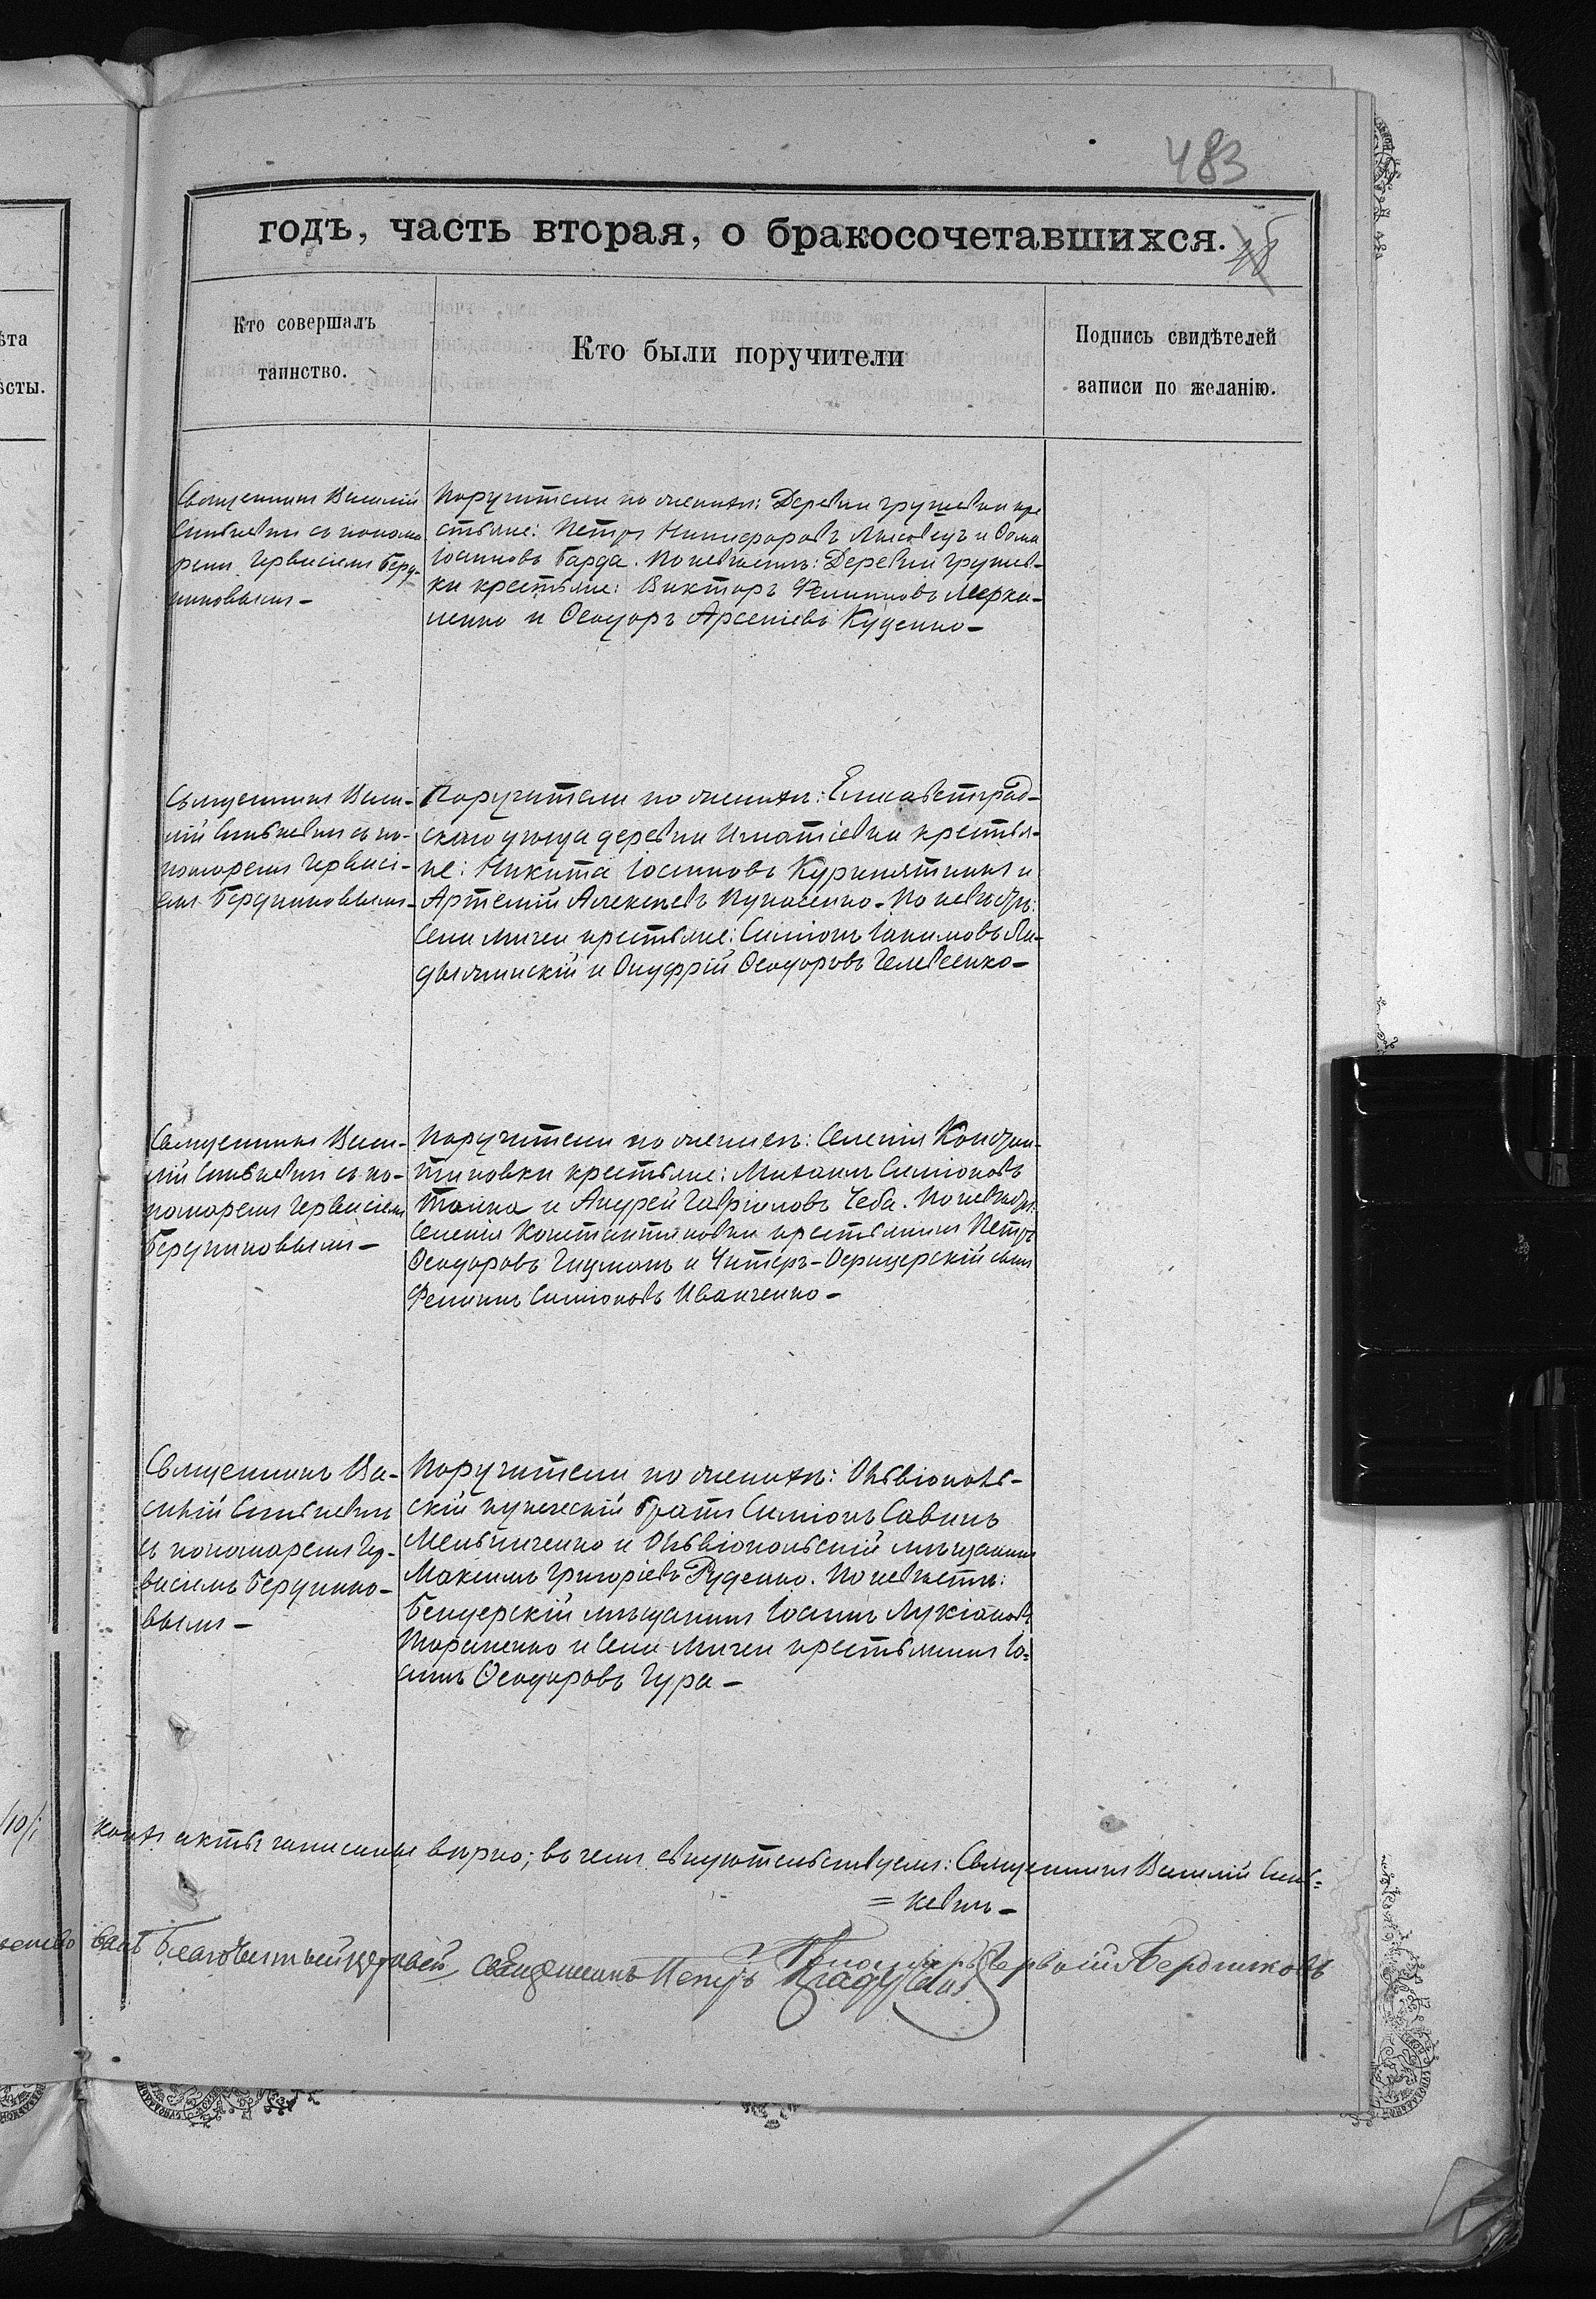 483
годъ, часть вторая, о бракосочетавшихся.
Кто совершалъ
таинство.
Кто были поручители
Подпись свидѣтелей
записи по желанію.
Священникъ Василій
съ понома-
ремъ Гервасіемъ Берд-
никовымъ –
Поручители по женихѣ: Деревни Грушевки кре
стьяне: Петръ Никифоровъ Лисовецъ и Ѳома
Іоанновъ Гарда. По невѣстѣ: Деревни Грушев-
ки крестьяне: Викторъ Филипповъ Мерку-
ленко и Ѳеодоръ Арсеніевъ Куценко –
Священникъ Васи-
лій съ по-
номаремъ Гервасі-
емъ Бердниковымъ –
Поручители по женихѣ: Елисаветград-
скаго уѣзда деревни Игнатіевки крестья-
не: Никита Іоанновъ Курипятникъ и
Артемій Алексѣевъ Пукасенко. По невѣстѣ:
крестьяне: Симіонъ Іакимовъ
и Онуфрій Ѳеодоровъ Челевсенко –
Священникъ Васи-
лій съ по-
номаремъ Гервасіемъ
Бердниковымъ –
Поручители по женихѣ: Селенія Констан-
тиновки крестьяне: Михаилъ Симіоновъ
и Андрей Гавріиловъ Чеба. По невѣстѣ:
Селенія Константиновки крестьянинъ Петръ
Ѳеодоровъ Гицманъ и Унтеръ-Офицерскій сынъ
Филиппъ Симіоновъ Иванченко –
Священникъ Ва-
силій
съ пономаремъ Гер-
васіемъ Бердико-
вымъ –
Поручители по женихѣ: Ольвіополь-
скій купеческій братъ Симіонъ Савинъ
Мельниченко и Ольвіопольскій мѣщанинъ
Максимъ Григоріевъ Руденко. По невѣстѣ:
Бендерскій мѣщанинъ Іоаннъ Лукіановъ
и крестьянинъ Іо-
аннъ Ѳеодоровъ Гура –
акты записаны вѣрно; въ чемъ свидѣтельствуемъ: Священникъ Василій
Благочинный церквей, священникъ Петръ
Пономарь Гервасій Бердниковъ